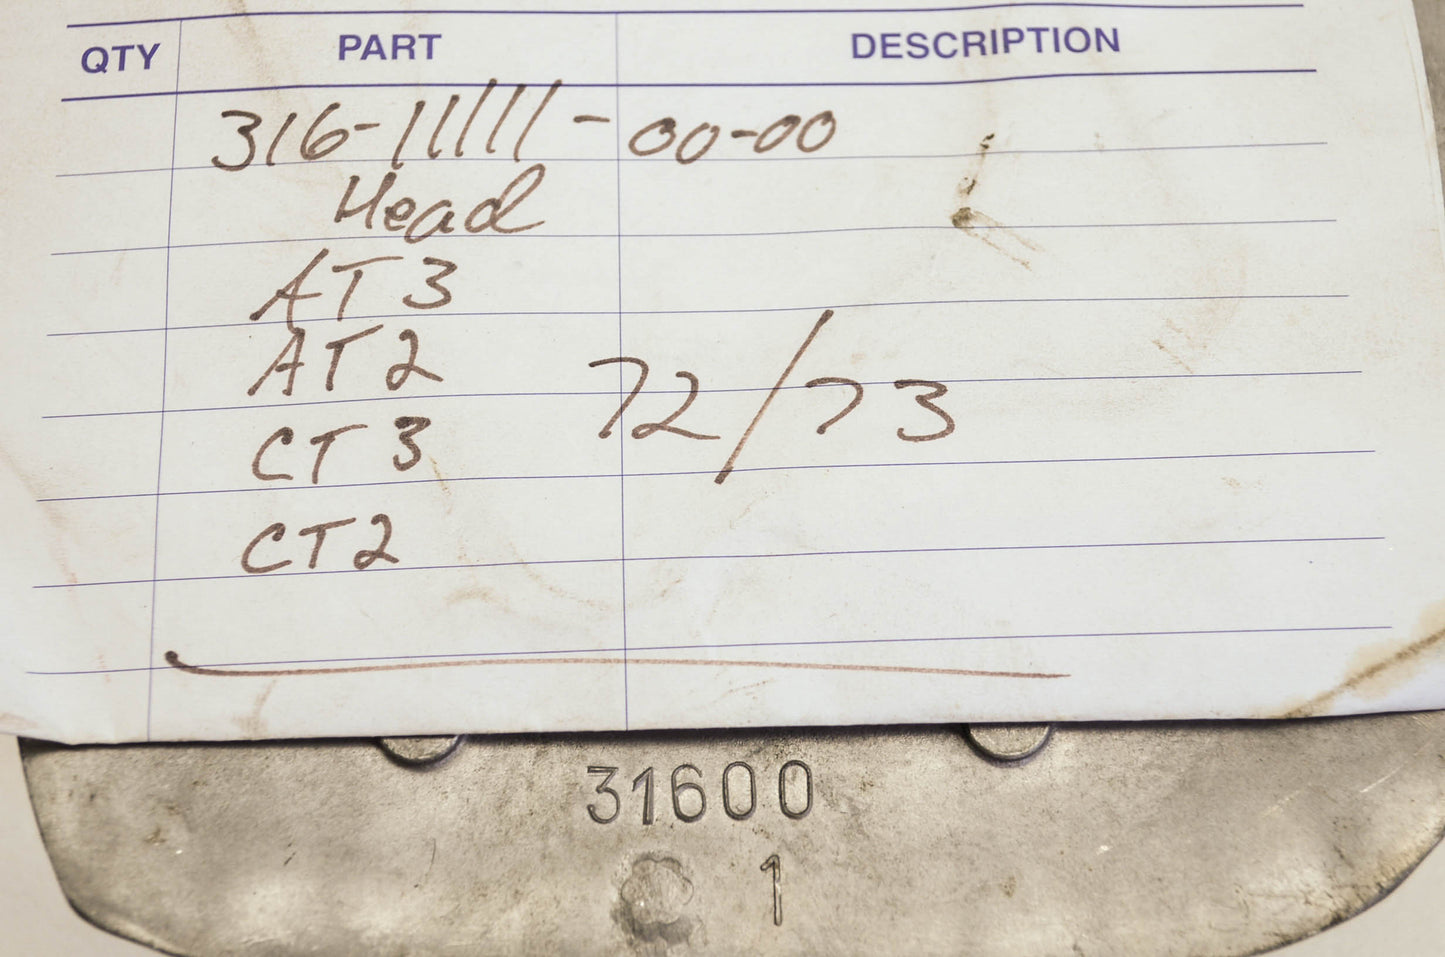 QTY PART DESCRIPTION
316-11111-00-00
Head
AT3
AT2
72/73
CT3
CT2
31600
1